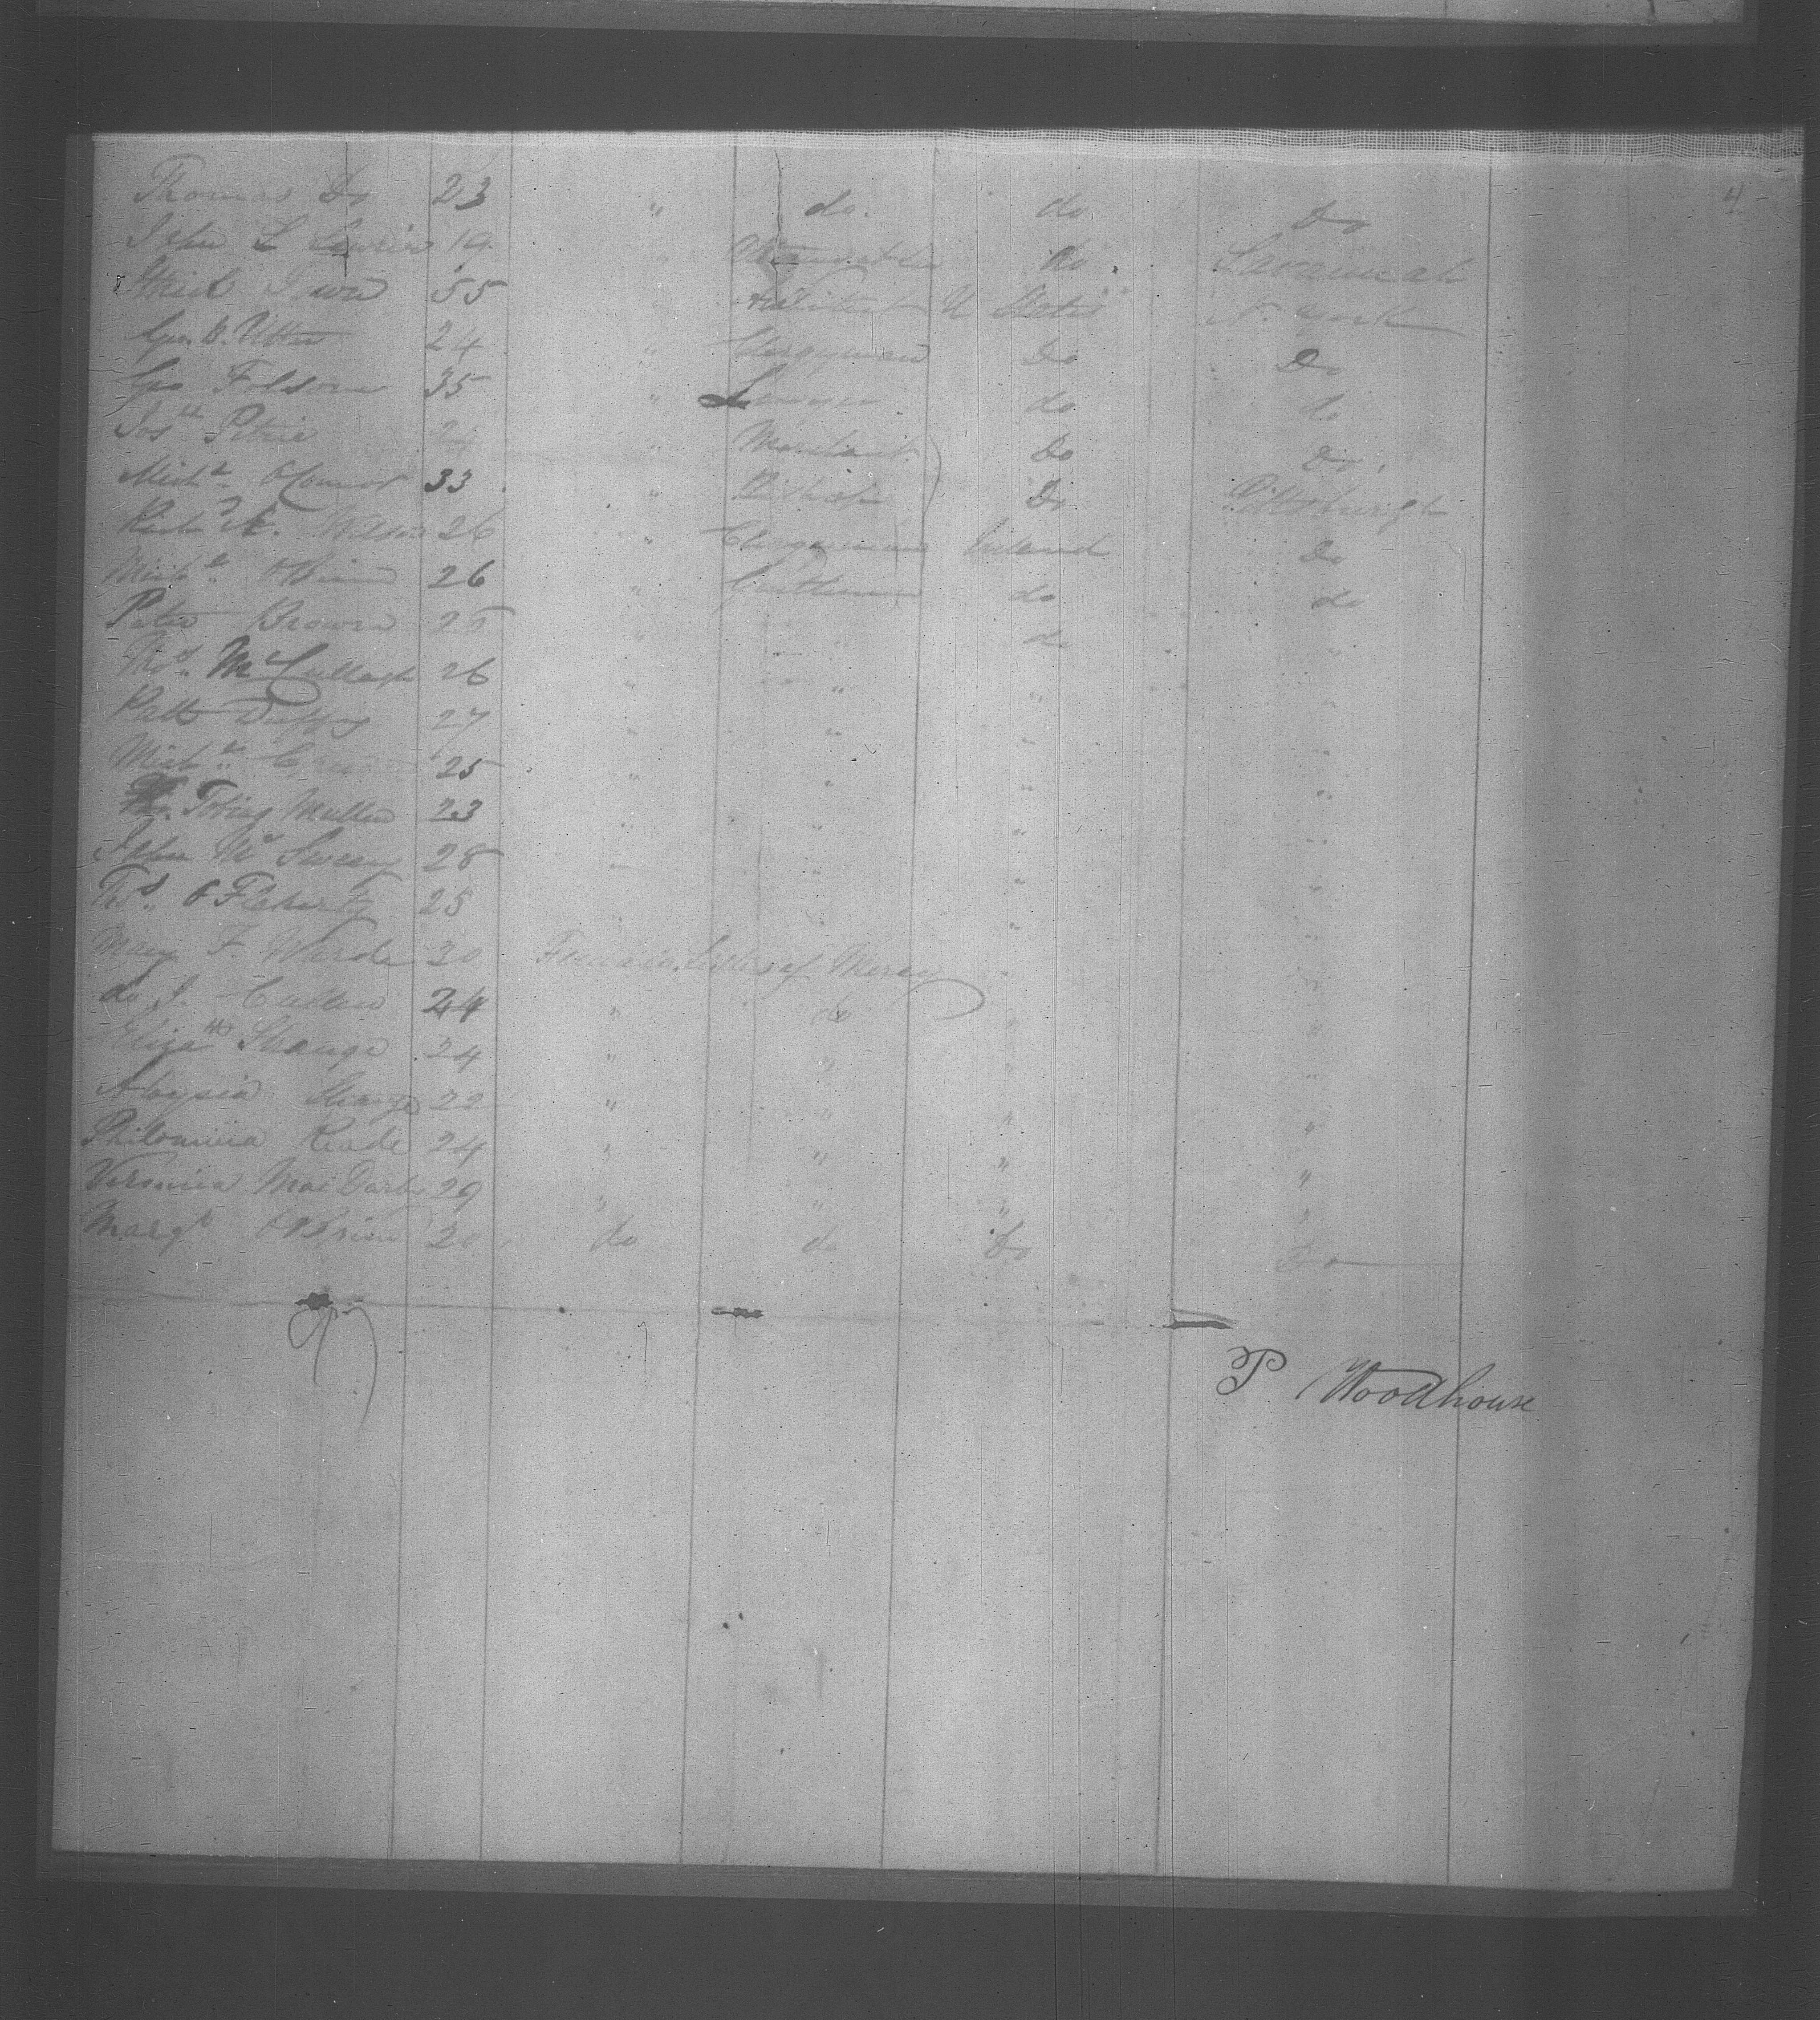 4
Thomas Do 23 " do. do Do
John L 19 " do. Savannah
Ithiel Town 55 " Architect U States N. York
Geo. B. Utter 24 " Clergyman Do Do
Geo Folsom 35 " Lawyer do do
Josh Petrie 24 " Merchant Do Do.
Michl. OConnor 33 " Do Pittsburgh
Richd A. Wilson 26 " Clergyman Ireland Do
Michl. OBrien 26 " Gentleman do do
Peter Brown 25 " " do "
Thos. McCullagh 26 " " " "
Patk Duffy 27 " " " "
Michl. 25 " " " "
Tobias Mullen 23 " " " "
John Mc Sweeny 28 " " " "
Thos. O Flaherty 25 " " " "
Mary F. Warde 30 Female Sister of Mercy "
do J. Cullen 24 " do " "
Elizath Strange 24 " " " "
Aloysia Strange 22 " " " "
Philomina Reade 24 " " " "
Veronica MacDarby 29 " " " "
Margt OBrien 20 do do Do Do
97
P Woodhouse